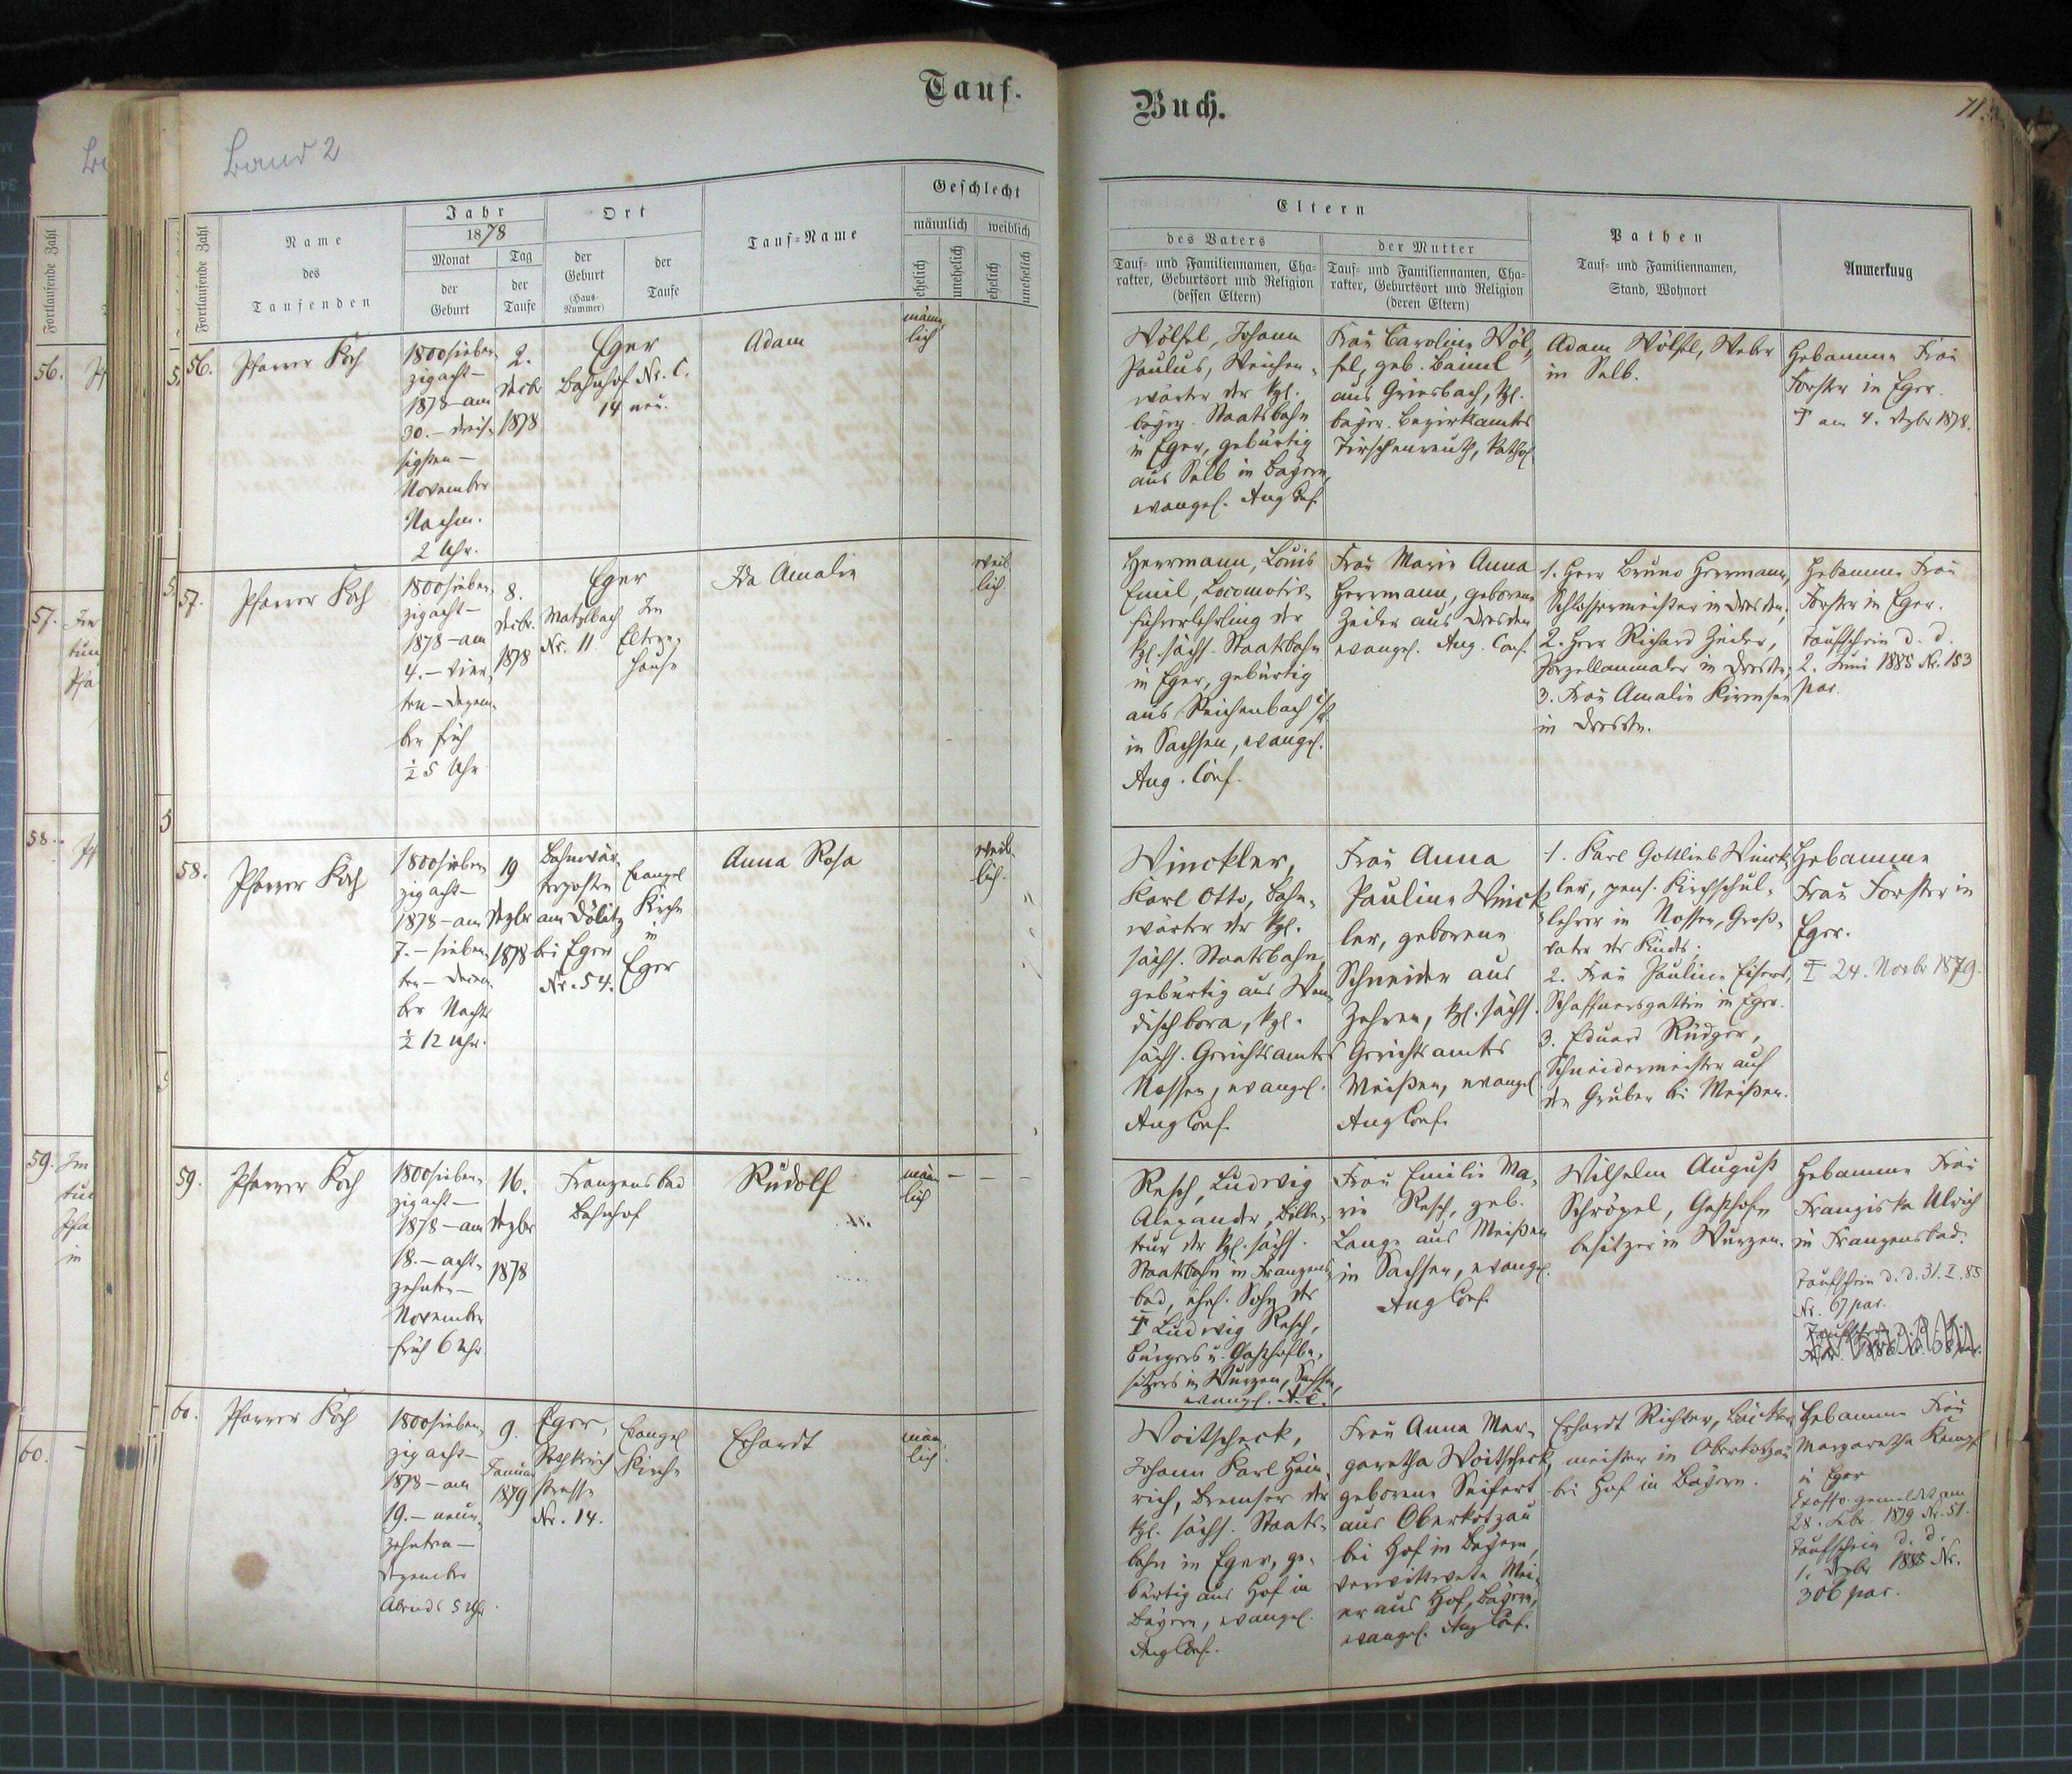 Tauf-
Buch.
71.
Band 2
Fortlaufende Zahl
Name
des
Taufenden
Jahr
1878
Monat
der
Geburt
Tag
der
Taufe
Ort
der
Geburt
(Haus-
Nummer)
der
Taufe
Tauf-Name
Geschlecht
männlich
weiblich
ehelich
unehelich
ehelich
unehelich
Eltern
des Vaters
Tauf- und Familiennamen, Cha-
rakter, Geburtsort und Religion
(dessen Eltern)
der Mutter
Tauf- und Familiennamen, Cha-
rakter, Geburtsort und Religion
(deren Eltern)
Pathen
Tauf- und Familiennamen,
Stand, Wohnort
Anmerkung
56.
Pfarrer Koch
1800sieben-
zigacht-
1878-am
30.-dreis-
sigsten-
November
Nachm.
2 Uhr.
2.
Decbr
1878
Eger
Bahnhof Nr. C.
14 neu.
Adam
männ-
lich
Wölfel, Johann
Paulus, Weichen-
wärter der kgl.
bayer. Staatsbahn
in Eger, gebürtig
aus Selb in Bayern,
evangel. Aug Conf.
Frau Caroline Wöl-
fel, geb. Bäuml
aus Griesbach, kgl.
bayer. Bezirkamtes
Tirschenreuth, kathol.
Adam Wölfel, Weber
in Selb.
Hebamme Frau
Forster in Eger.
† am 4. Dezbr 1878.
57.
Pfarrer Koch
1800sieben-
zigacht-
1878-am
4.-vier-
ten-Dezem-
ber früh
½ 5 Uhr
8.
Decbr.
1878
Eger
Matzlbach
Nr. 11
Im
Eltern-
hause
Ida Amalie
weib-
lich
Herrmann, Louis
Emil, Locomotiv-
führerlehrling der
kgl. sächs. Staatsbahn
in Eger, gebürtig
aus Reichenbach i/V.
in Sachsen, evangel.
Aug. Conf.
Frau Marie Anna
Herrmann, geborene
Zeiler aus Dresden
evangel. Aug. Conf.
1. Herr Bruno Herrmann,
Schlossermeister in Dresden;
2. Herr Richard Zeiler,
Porzellanmaler in Dresden;
3. Frau Amalie Kirmsen
in Dresden.
Hebamme Frau
Forster in Eger.
Taufschein d. d.
2. Juni 1885 Nr. 153
par.
58.
Pfarrer Koch
1800sieben-
zigacht-
1878-am
7.-sieben-
ten-Dezem-
ber Nachts
½ 12 Uhr.
19
Dezbr
1878
Bahnwär-
terposten
am Dölitz
bei Eger
Nr. 54.
Evangel
Kirche
in
Eger
Anna Rosa
weib-
lich.
Winckler,
Karl Otto, Bahn-
wärter der kgl.
sächs. Staatsbahn,
gebürtig aus Wen-
dischbora, kgl.
sächs. Gerichtsamtes
Nossen, evangel.
Aug Conf.
Frau Anna
Pauline Winck-
ler, geborene
Schneider aus
Zehren, kgl. sächs.
Gerichtsamtes
Meißen, evangel
Aug Conf.
1. Karl Gottlieb Winck-
ler, pens. Kirchschul-
lehrer in Nossen, Groß-
vater des Kindes;
2. Frau Pauline
Schaffnersgattin in Eger.
3. Eduard Rüdger,
Schneidermeister auf
den Gruben bei Meißen.
Hebamme
Frau Forster in
Eger.
† 24. Novbr 1879.
59.
Pfarrer Koch
1800sieben-
zigacht-
1878-am
18.-acht-
zehnten-
November
früh 6 Uhr
16.
Dezbr
1878
Franzensbad
Bahnhof
Rudolf
männ-
lich
Resch, Ludwig
Alexander, Bille-
teur der kgl. sächs.
Staatsbahn in Franzens-
bad, ehel. Sohn des
† Ludwig Resch,
Bürgers u. Gasthofbe-
sitzers in Wurzen, Sachsen,
evangel. A. C.
Frau Emilie Ma-
rie Resch, geb.
Lange aus Meißen
in Sachsen, evangel.
Aug Conf.
Wilhelm August
Schrögel, Gasthofs-
besitzer in Wurzen.
Hebamme Frau
Franziska Ulrich
in Franzensbad.
Taufschein d. d. 31. I. 85
Nr. 67 par.
60.
Pfarrer Koch
1800sieben-
zigacht-
1878-am
19.-neun-
zehnten-
Dezember
Abends 5 Uhr.
9.
Januar
1879
Eger,
strasse
Nr. 14.
Evangel
Kirche
Erhardt
männ-
lich.
Woitscheck,
Johann Karl Hein-
rich, Bremser der
kgl. sächs. Staats-
bahn in Eger, ge-
bürtig aus Hof in
Bayern, evangel.
Aug Conf.
Frau Anna Mar-
garetha Woitscheck,
geborene Seifert
aus Oberkotzau
bei Hof in Bayern,
verwittwete Mei-
er aus Hof, Bayern,
evangel. Aug Conf.
Erhardt Richter, Bäcker-
meister in Oberkotzau
bei Hof in Bayern.
Hebamme Frau
Margaretha Kempf
in Eger
Exoffo. gemeldet am
28. Febr. 1879 Nr. 51.
Taufschein d. d.
1. Dzbr 1885 Nr.
306 par.